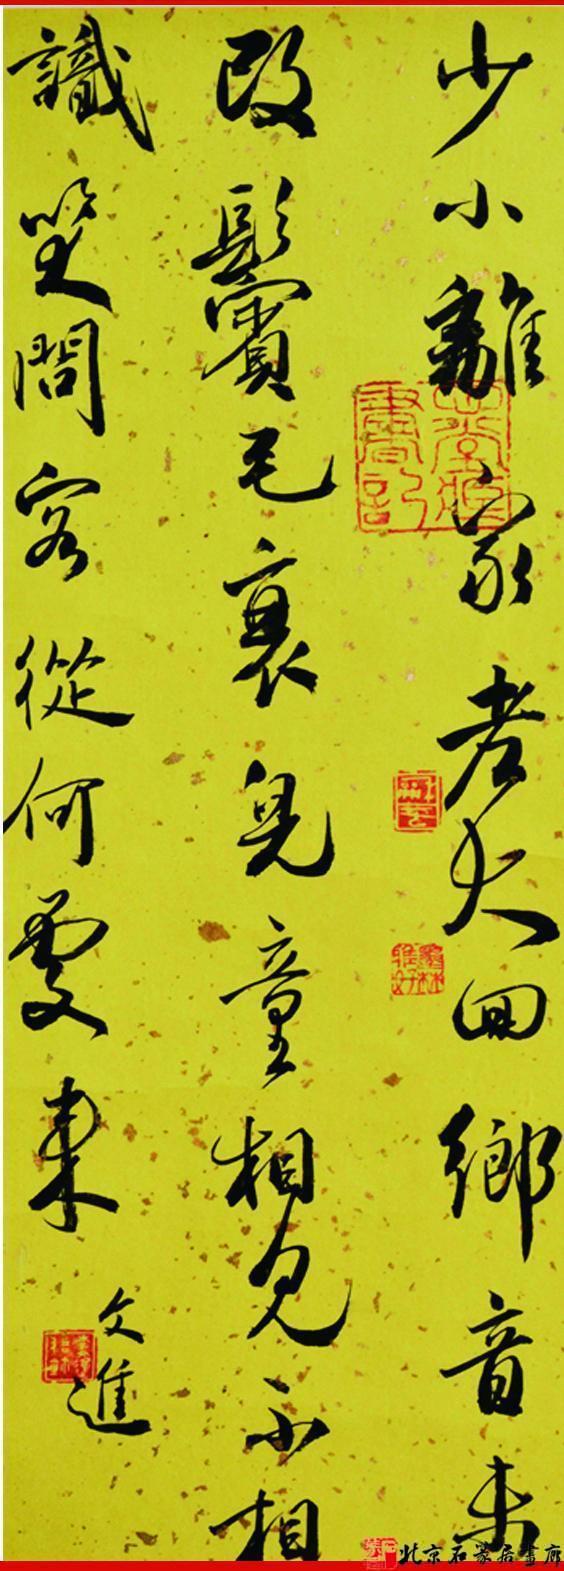 少小離家老大回鄉音未
改鬢毛衰兒童相見不相
識笑問客從何處來
文進
北京石居畫廊